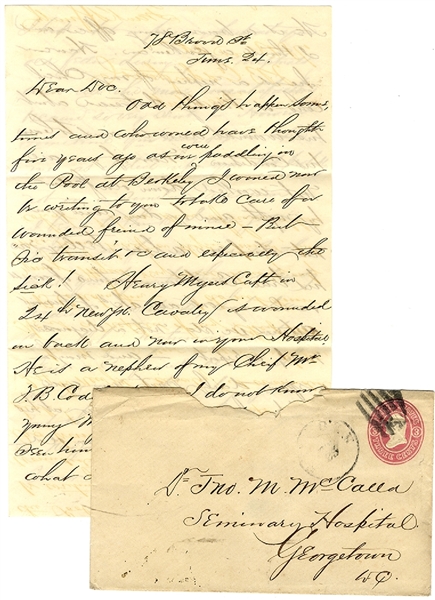 78 Broad St
June 24.
Dear Doc.
Odd things happen some
times and who would have thought
five years ago as we were paddling in
the Pool at Berkeley I would now
be writing to you to take care of a
wounded friend of mine - But
"Sic transit" &c and especially the
sick! Henry Myers Capt in
24th New Yk. Cavalry is wounded
in back and now in your Hospital
He is a nephew of my Chief Mr
J. B. do not know
young
seen him
what
Dr. Jno. M. McCalla
Seminary Hospital
Georgetown
D.C.